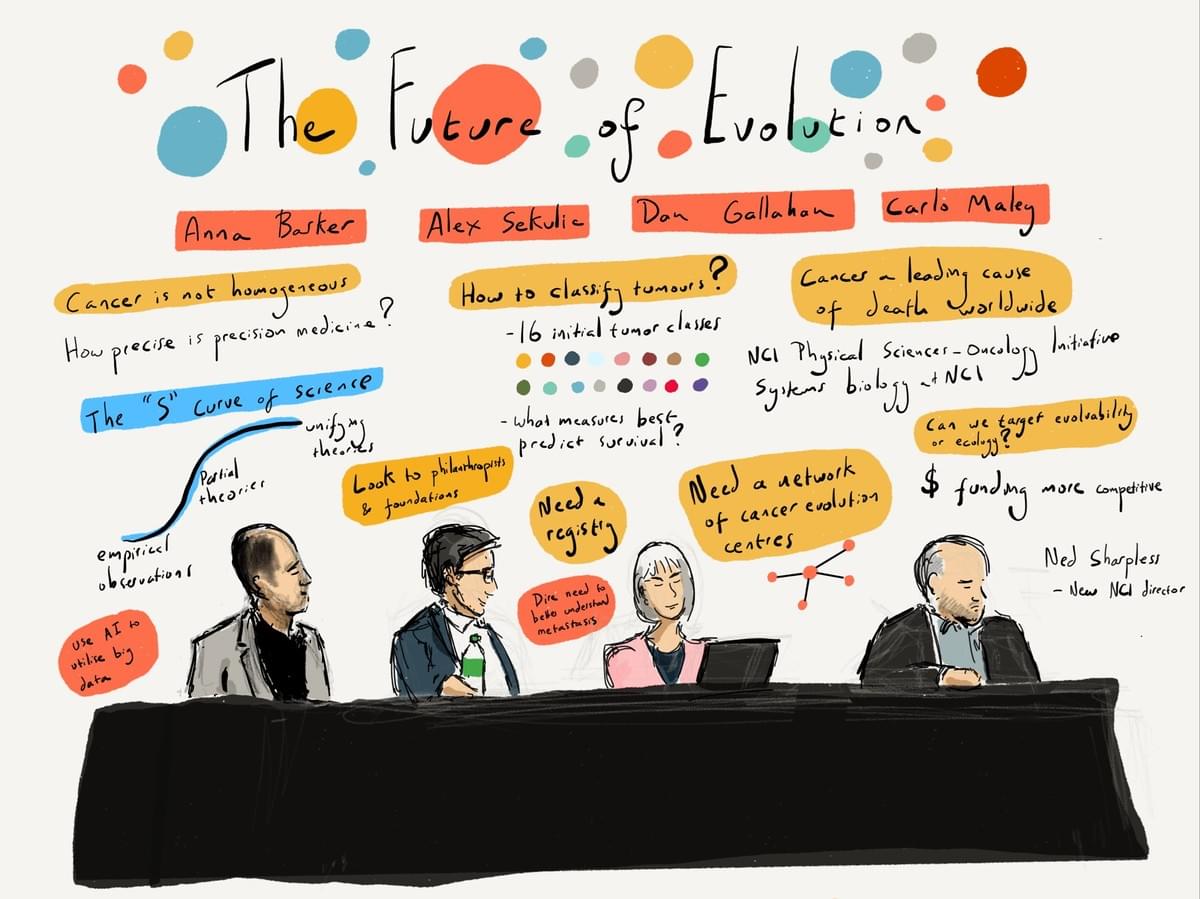 The Future of Evolution
Anna Barker
Alex Sekulic
Dan Gallahan
Carlo Maley
Cancer is not homogeneous
How precise is precision medicine?
The "S" Curve of Science
unifying
theories
Partial
theories
empirical
observations
use AI to
utilise big
data
How to classify tumours?
- 16 initial tumor classes
- what measures best
predict survival?
Look to philanthropists
& foundations
Need a
registry
Dire need to
better understand
metastasis
Cancer a leading cause
of death worldwide
NCI Physical Sciences-Oncology Initiative
Systems biology at NCI
Can we target evolvability
or ecology?
$ funding more competitive
Need a network
of cancer evolution
centres
Ned Sharpless
- New NCI director